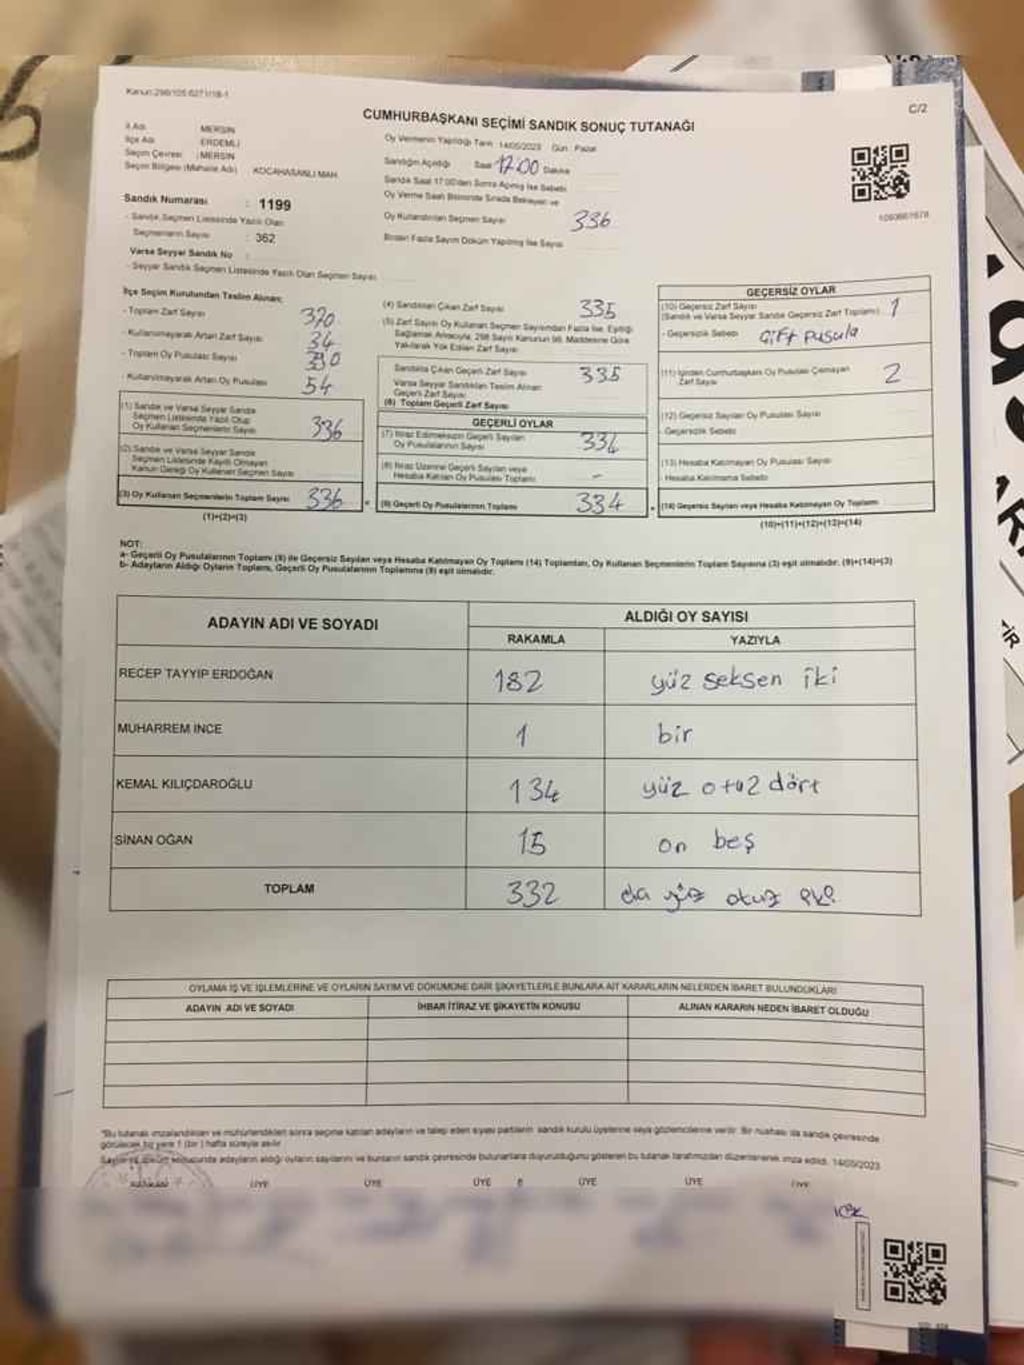 Kanun:298/105 6271/18-1
C/2
CUMHURBAŞKANI SEÇİMİ SANDIK SONUÇ TUTANAĞI
İl Adı : MERSİN
İlçe Adı : ERDEMLİ
Seçim Çevresi : MERSİN
Seçim Bölgesi (Mahalle Adı) : KOCAHASANLI MAH.
Oy Vermenin Yapıldığı Tarih 14/05/2023 Gün : Pazar
Sandığın Açıldığı Saat 17:00 Dakika
Sandık Saat 17:00'den Sonra Açılmış İse Sebebi
Oy Verme Saati Bitiminde Sırada Bekleyen ve
Oy Kullandırılan Seçmen Sayısı 336
Birden Fazla Sayım Döküm Yapılmış İse Sayısı
Sandık Numarası : 1199
- Sandık Seçmen Listesinde Yazılı Olan
Seçmenlerin Sayısı : 362
Varsa Seyyar Sandık No :
- Seyyar Sandık Seçmen Listesinde Yazılı Olan Seçmen Sayısı
İlçe Seçim Kurulundan Teslim Alınan;
- Toplam Zarf Sayısı 370
- Kullanılmayarak Artan Zarf Sayısı 34
- Toplam Oy Pusulası Sayısı
- Kullanılmayarak Artan Oy Pusulası 54
(1) Sandık ve Varsa Seyyar Sandık
Seçmen Listesinde Yazılı Olup
Oy Kullanan Seçmenlerin Sayısı 336
(2) Sandık ve Varsa Seyyar Sandık
Seçmen Listesinde Kayıtlı Olmayan
Kanun Gereği Oy Kullanan Seçmen Sayısı
(3) Oy Kullanan Seçmenlerin Toplam Sayısı 336
(1)+(2)=(3)
(4) Sandıktan Çıkan Zarf Sayısı 335
(5) Zarf Sayısı Oy Kullanan Seçmen Sayısından Fazla İse, Eşitliği
Sağlamak Amacıyla, 298 Sayılı Kanunun 98. Maddesine Göre
Yakılarak Yok Edilen Zarf Sayısı
Sandıkta Çıkan Geçerli Zarf Sayısı 335
Varsa Seyyar Sandıktan Teslim Alınan
Geçerli Zarf Sayısı
(6) Toplam Geçerli Zarf Sayısı
GEÇERLİ OYLAR
(7) İtiraz Edilmeksizin Geçerli Sayılan
Oy Pusulalarının Sayısı 334
(8) İtiraz Üzerine Geçerli Sayılan veya
Hesaba Katılan Oy Pusulası Toplamı -
(9) Geçerli Oy Pusulalarının Toplamı 334
GEÇERSİZ OYLAR
(10) Geçersiz Zarf Sayısı
(Sandık ve Varsa Seyyar Sandık Geçersiz Zarf Toplamı) 1
- Geçersizlik Sebebi Çift Pusula
(11) İçinden Cumhurbaşkanı Oy Pusulası Çıkmayan
Zarf Sayısı 2
(12) Geçersiz Sayılan Oy Pusulası Sayısı
- Geçersizlik Sebebi
(13) Hesaba Katılmayan Oy Pusulası Sayısı
- Hesaba Katılmama Sebebi
(14) Geçersiz Sayılan veya Hesaba Katılmayan Oy Toplamı
(10)+(11)+(12)+(13)=(14)
NOT:
a- Geçerli Oy Pusulalarının Toplamı (9) ile Geçersiz Sayılan veya Hesaba Katılmayan Oy Toplamı (14) Toplamları, Oy Kullanan Seçmenlerin Toplam Sayısına (3) eşit olmalıdır. (9)+(14)=(3)
b- Adayların Aldığı Oyların Toplamı, Geçerli Oy Pusulalarının Toplamına (9) eşit olmalıdır.
ADAYIN ADI VE SOYADI
ALDIĞI OY SAYISI
RAKAMLA YAZIYLA
RECEP TAYYİP ERDOĞAN 182 yüz seksen iki
MUHARREM İNCE 1 bir
KEMAL KILIÇDAROĞLU 134 yüz otuz dört
SİNAN OĞAN 15 on beş
TOPLAM 332 yüz otuz
OYLAMA İŞ VE İŞLEMLERİNE VE OYLARIN SAYIM VE DÖKÜMÜNE DAİR ŞİKAYETLERLE BUNLARA AİT KARARLARIN NELERDEN İBARET BULUNDUKLARI
ADAYIN ADI VE SOYADI İHBAR İTİRAZ VE ŞİKAYETİN KONUSU ALINAN KARARIN NEDEN İBARET OLDUĞU
"Bu tutanak imzalandıktan ve mühürlendikten sonra seçime katılan adayların ve talep eden siyasi partilerin sandık kurulu üyelerine veya gözlemcilerine verilir. Bir nüshası da sandık çevresinde
görülecek bir yere 1 (bir) hafta süreyle asılır.
Sayım ve döküm sonucunda adayların aldığı oyların sayılarını ve bunların sandık çevresinde bulunanlara duyurulduğunu gösteren bu tutanak tarafımızdan düzenlenerek imza edildi. 14/05/2023
BAŞKAN ÜYE ÜYE ÜYE ÜYE ÜYE ÜYE